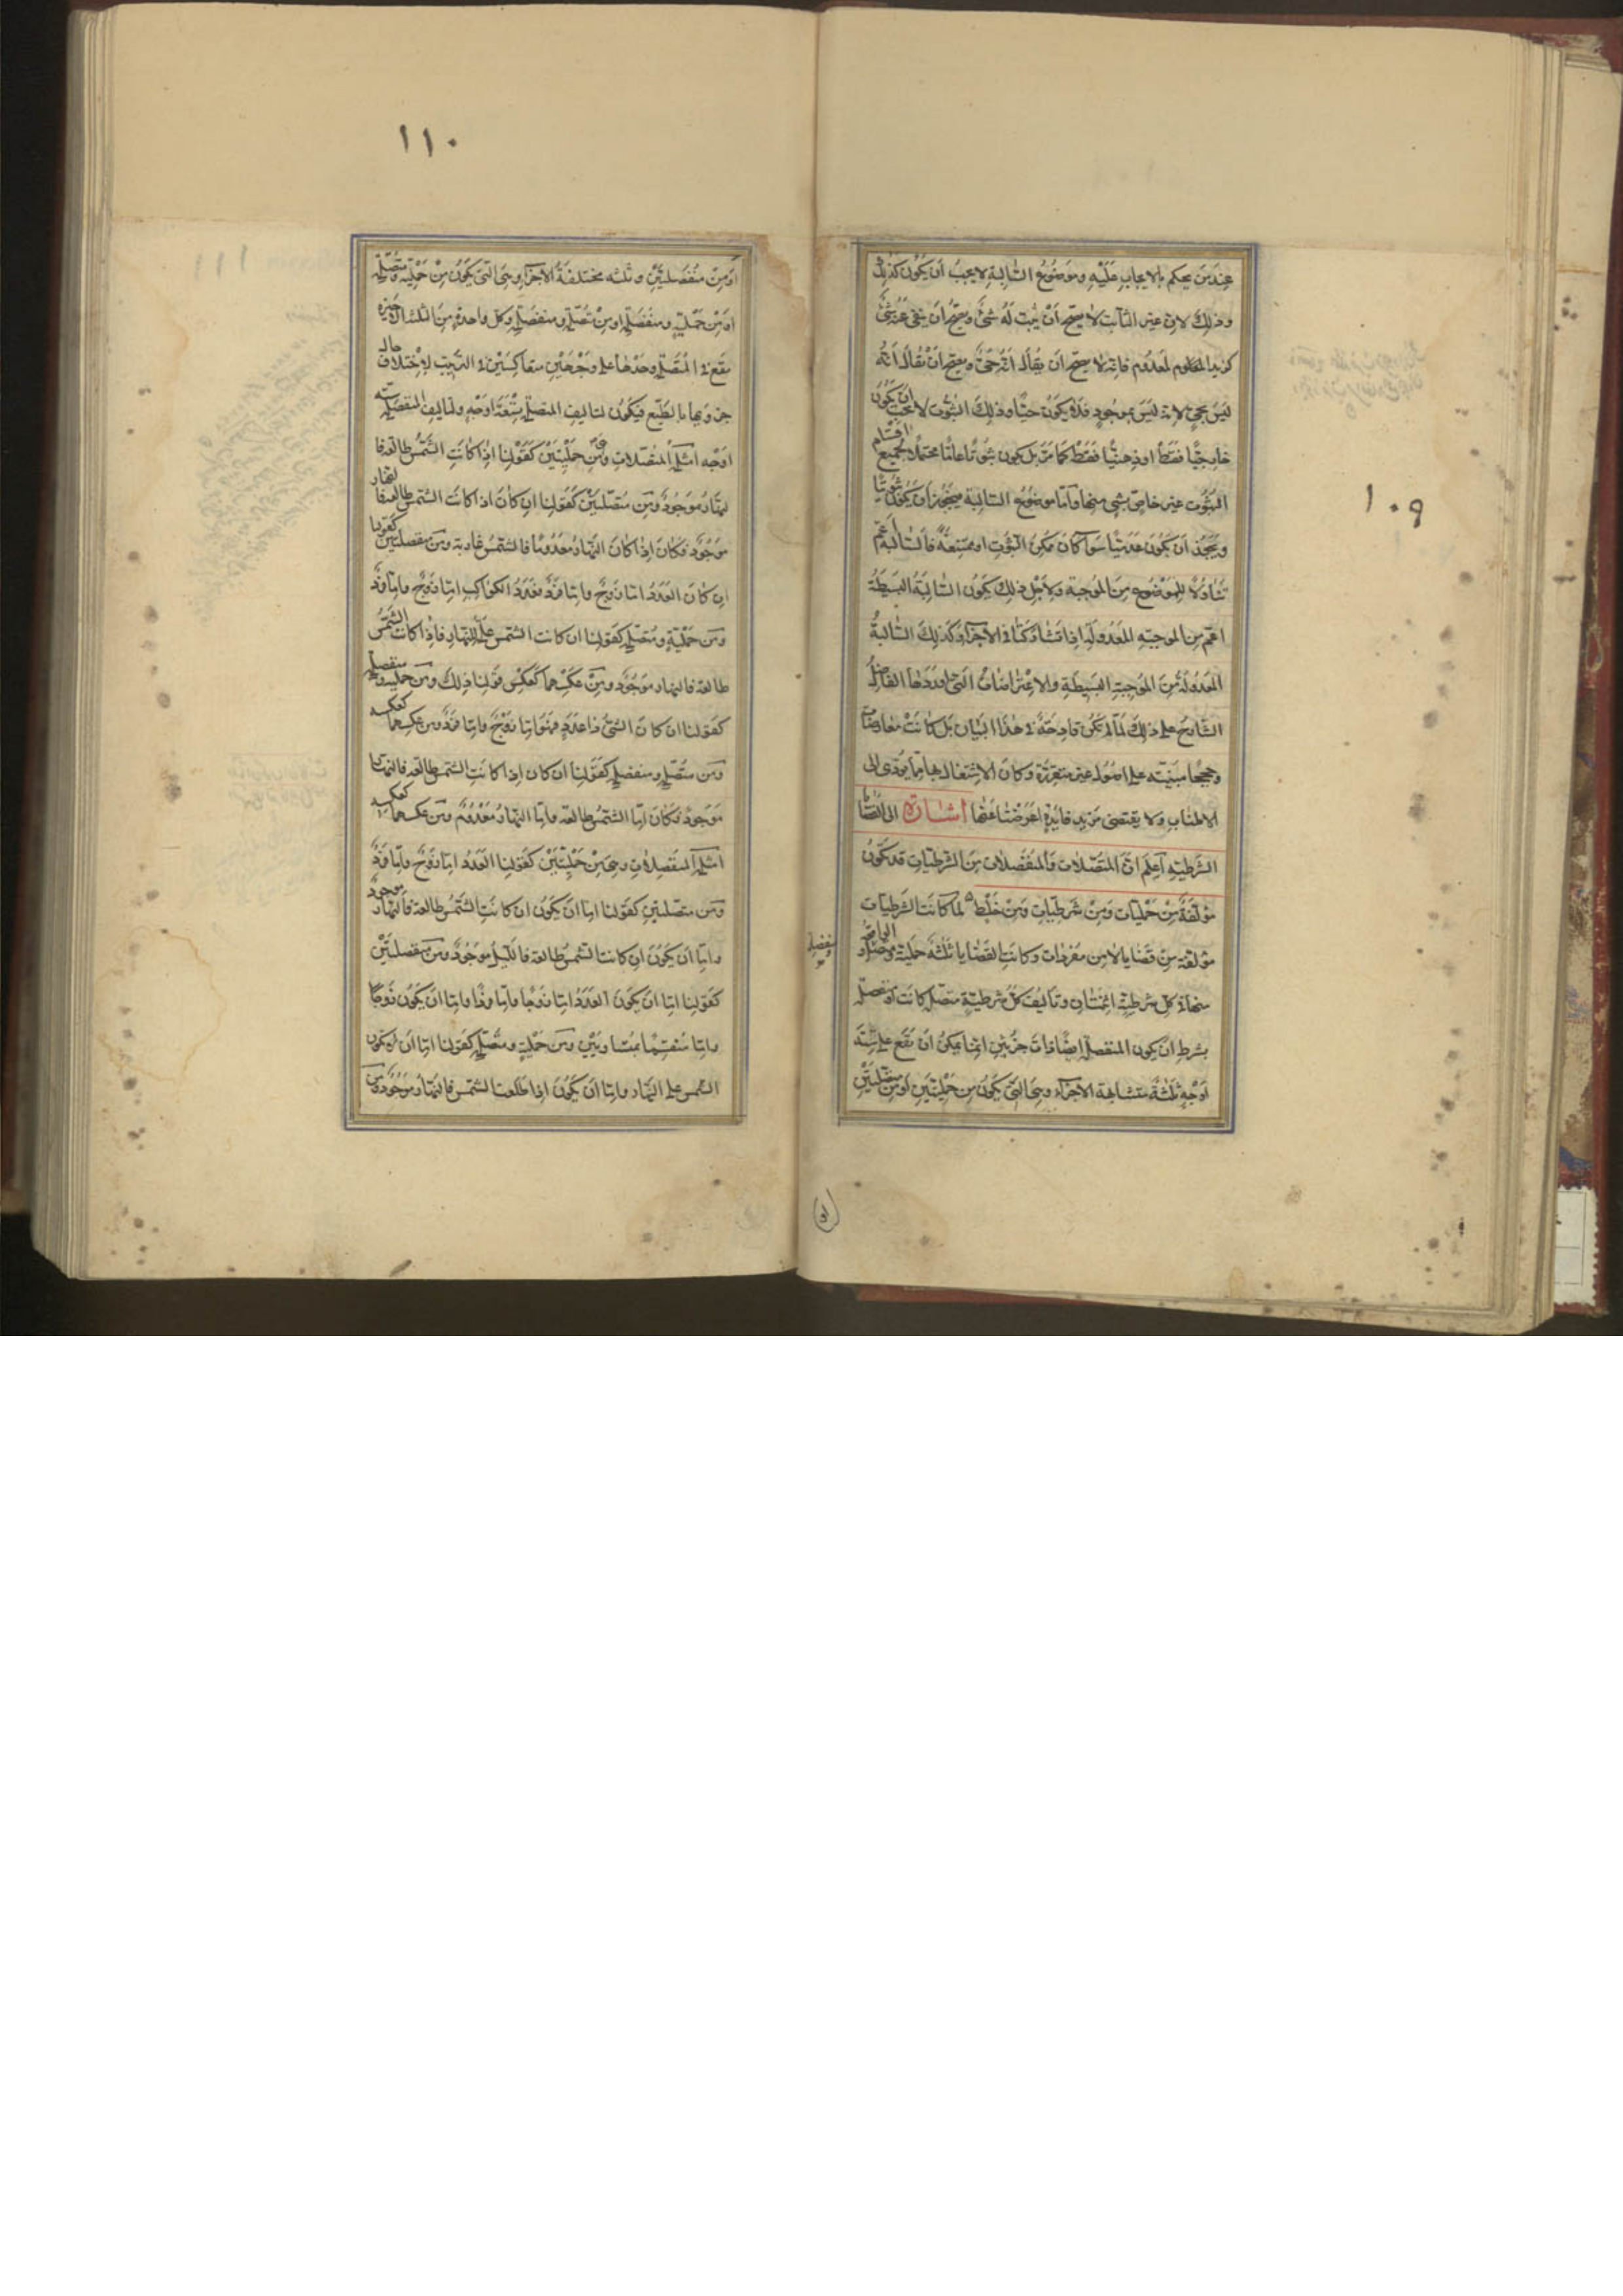 ١٠٩
عند من يحكم بالايجاب عليه وموضوع السالبة لا يجب ان يكون كذلك
وذلك لان غير الثابت لا يصح ان يثبت له شئ ويصح ان ينفى عنه شئ
كزيد المعدوم فانه لا يصح ان يقال انه حى ويصح ان يقال انه
ليس بحى لانه ليس بموجود فلا يكون حيا وذلك الثبوت لا يجب ان يكون
خارجيا فقط او ذهنيا فقط كما مر بل يكون ثبوتا عاما محتملا لجميع اقسام
الثبوت غير خاص بشئ منها واما موضوع السالبة فيجوز ان يكون ثبوتيا
ويجوز ان يكون عدميا سوآ كان ممكن الثبوت او ممتنعة فالسالبة اعم
تناولا للموضوع من الموجبة ولاجل ذلك يكون السالبة البسيطة
اعم من الموجبه المعدوله اذا تشاركتا فى الاجزآ وكذلك السالبة
المعدولة من الموجبة البسيطة والاعتراضات التى اوردها الفاضل
الشارح على ذلك لما لم تكن قادحة فى هذا البيان بل كانت معارضات
وحججا مبنيته على اصول غير متقررة وكان الاشتغال بها مما يودى الى
الاطناب ولا يقتضى مزيد فايدة اعرضنا عنها اشارة الى القضايا
الشرطيه اعلم ان المتصلات والمنفصلات من الشرطيات قد تكون
مؤلفة من حمليات ومن شرطيات ومن خلط لما كانت الشرطيات
مؤلفة من قضايا لا من مفردات وكانت القضايا ثلثة حملية ومتصلة و
منفصلة
منها فى كل شرطية اثنتان وتأليف كل شرطية متصلة كانت او منفصلة
بشرط ان يكون المنفصلة ايضا ذات جزئين انما يمكن ان تقع على ستة
اوجه ثلثة متشابهة الاجزآء وهى التى يكون من حمليتين او من متصلتين
١١٠
او من منفصلتين وثلثه مختلفة الاجزآ وهى التى يكون من حملية ومتصلة
او من حملية ومنفصلة او من متصلة ومنفصلة وكل واحدة من الثلث الاخيره
تقع فى المتصلة وحدها على وجهين متعاكسين فى الترتيب لاختلاف حال
جزويها بالطبع فيكون لتاليف المتصلة تسعة اوجه ولتاليف المنفصلة سته
اوجه امثلة المتصلات من حمليتين كقولنا اذا كانت الشمس طالعة فا
لنهار موجود ومن متصلتين كقولنا ان كان اذا كانت الشمس طالعة فالنهار
موجود فكان اذا كان النهار معدوما فالشمس غاربة ومن منفصلتين كقولنا
ان كان العدد اما زوج واما فرد فعدد الكواكب اما زوج واما فرد
ومن حملية ومتصلة كقولنا ان كانت الشمس علة للنهار فاذا كانت الشمس
طالعة فالنهار موجود ومن عكسهما كعكس قولنا ذلك ومن حملية ومنفصلة
كقولنا ان كان الشئ ذا عدد فهو اما زوج واما فرد ومن عكسهما كعكسه
ومن متصلة ومنفصلة كقولنا ان كان اذا كانت الشمس طالعة فالنهار
موجود فكان اما الشمس طالعة واما النهار معدوم ومن عكسهما كعكسه
امثلة المنفصلات وهى من حمليتين كقولنا العدد اما زوج واما فرد
ومن متصلتين كقولنا اما ان يكون ان كانت الشمس طالعة فالنهار موجود
واما ان يكون ان كانت الشمس طالعة فالليل موجود ومن منفصلتين
كقولنا اما ان يكون العدد اما زوجا واما فردا واما ان يكون زوجا
واما منقسما بمتساويين ومن حملية ومتصلة كقولنا اما ان لا يكون
الشمس علة النهار واما ان يكون اذا طلعت الشمس فالنهار موجود ومن